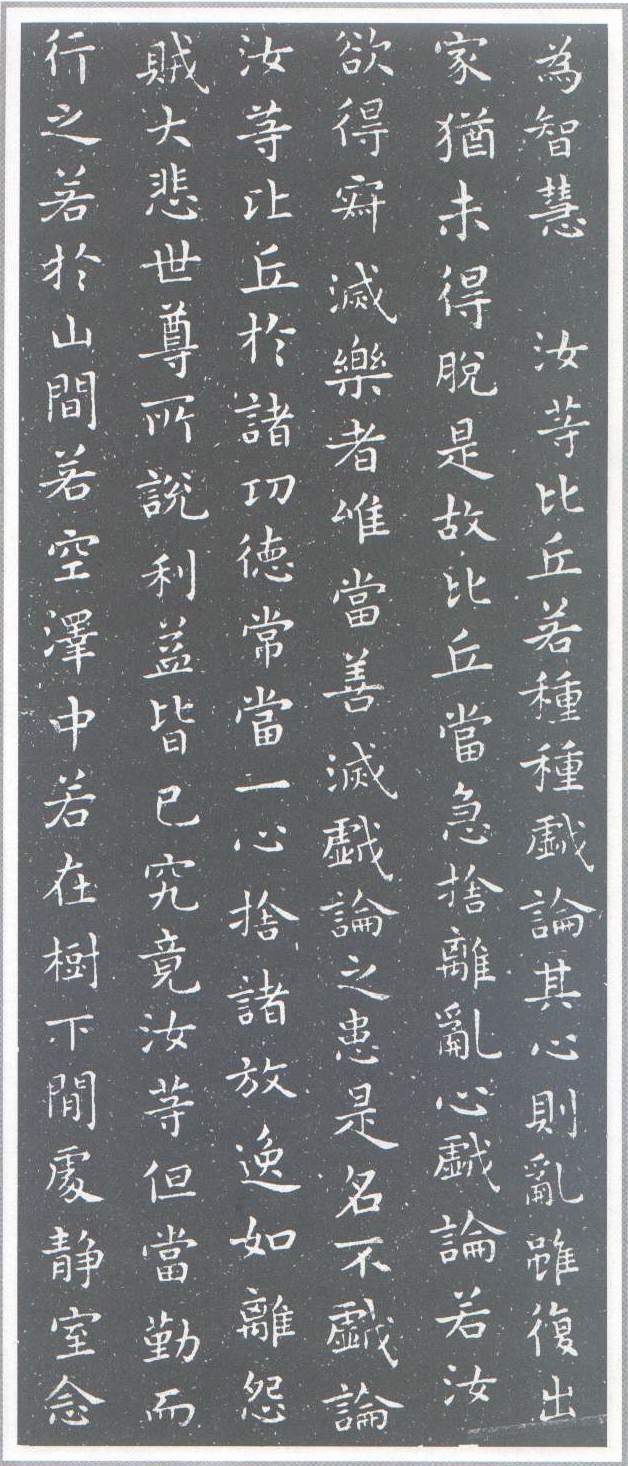 為智慧　汝等比丘若種種戱論其心則亂雖復出
家猶未得脫是故比丘當急捨離亂心戱論若汝
欲得寂滅樂者唯當善滅戱論之患是名不戱論
汝等比丘於諸功德常當一心捨諸放逸如離怨
賊大悲世尊所說利益皆已究竟汝等但當勤而
行之若於山間若空澤中若在樹下閒處靜室念